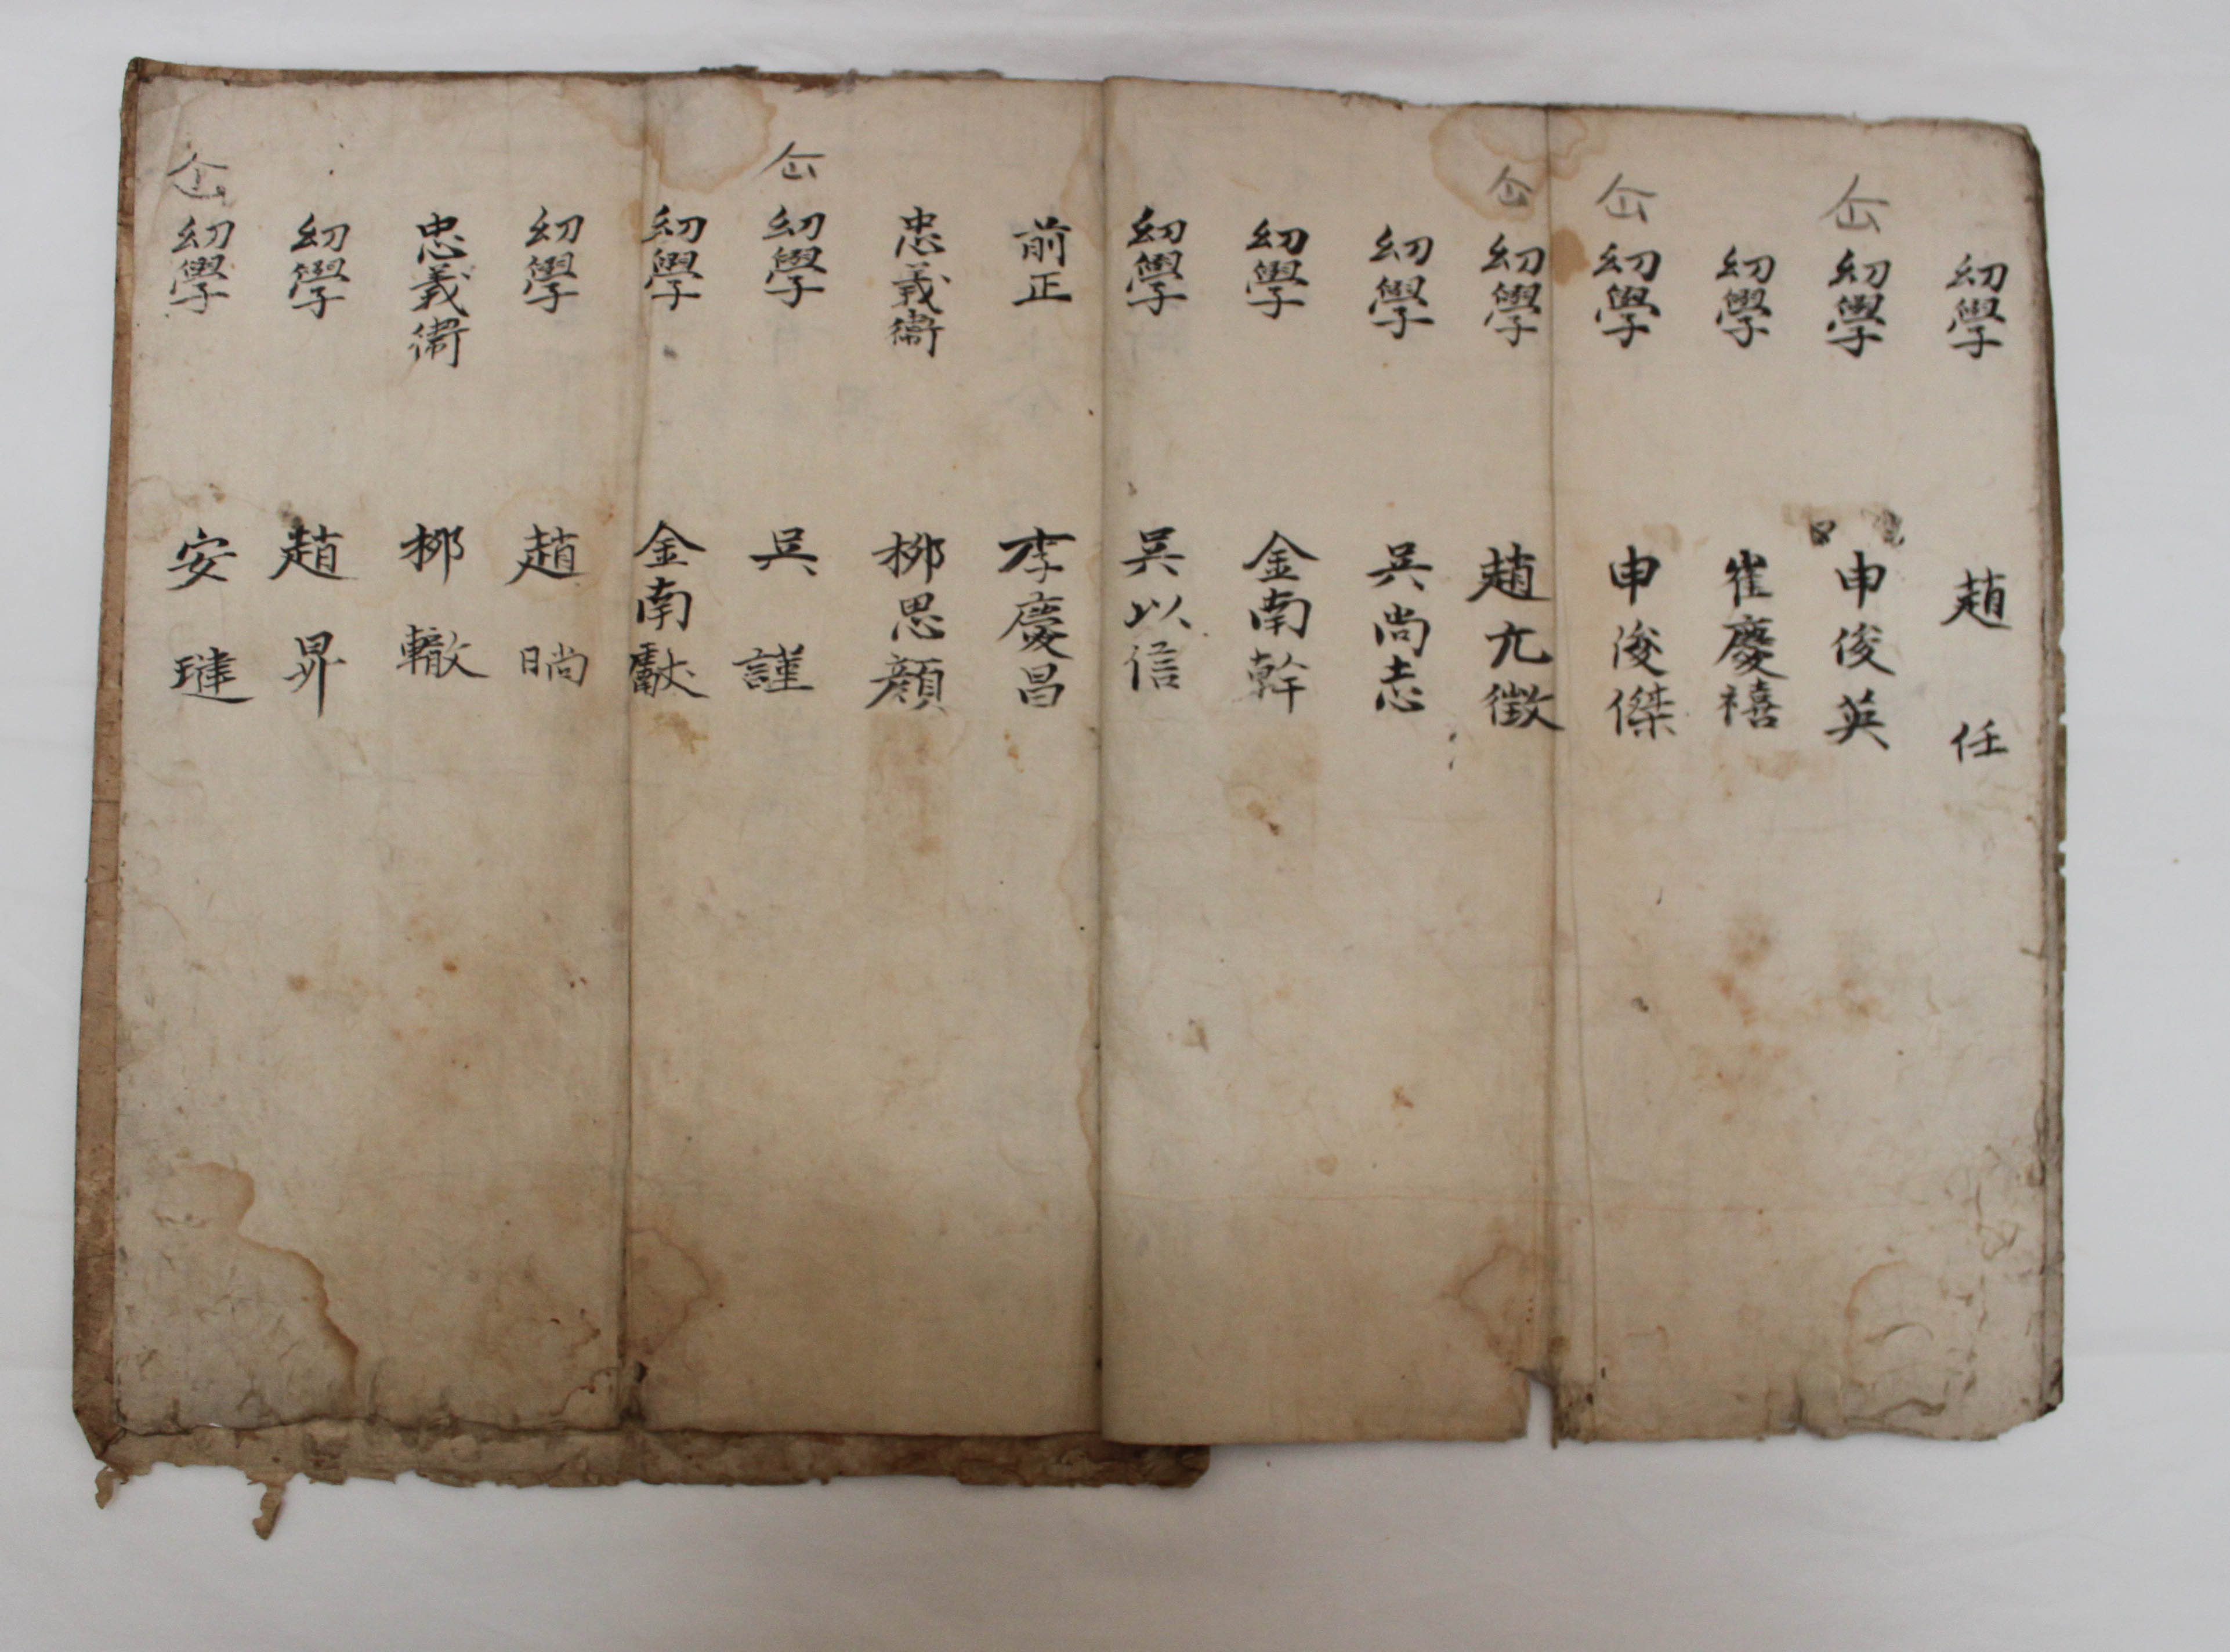 幼學 趙任
仚 幼學 申俊英
幼學 崔慶禧
仚 幼學 申浚傑
仚 幼學 趙亢徵
幼學 吳尙志
幼學 金南幹
幼學 吳以信
前正 李慶昌
忠義衛 柳思顔
仚 幼學 吳謹
幼學 金南獻
幼學 趙晌
忠義衛 柳轍
幼學 趙昇
仚 幼學 安璉